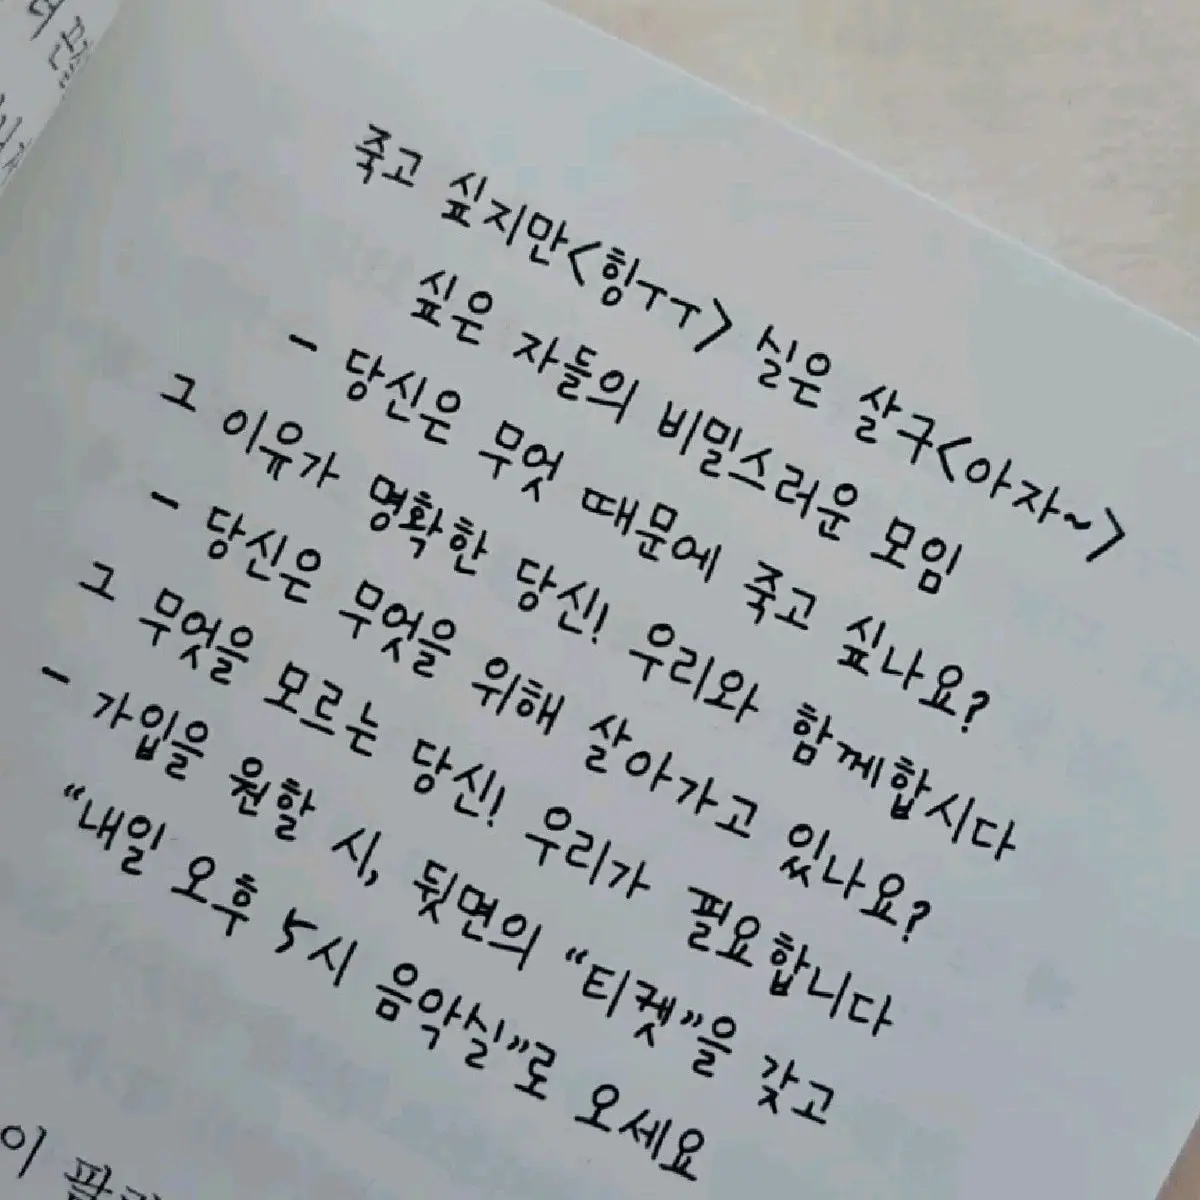 죽고 싶지만<힝ㅜㅜ> 실은 살구<아자~>
싶은 자들의 비밀스러운 모임
- 당신은 무엇 때문에 죽고 싶나요?
그 이유가 명확한 당신! 우리와 함께합시다
- 당신은 무엇을 위해 살아가고 있나요?
그 무엇을 모르는 당신! 우리가 필요합니다
- 가입을 원할 시, 뒷면의 “티켓”을 갖고
“내일 오후 5시 음악실”로 오세요
이